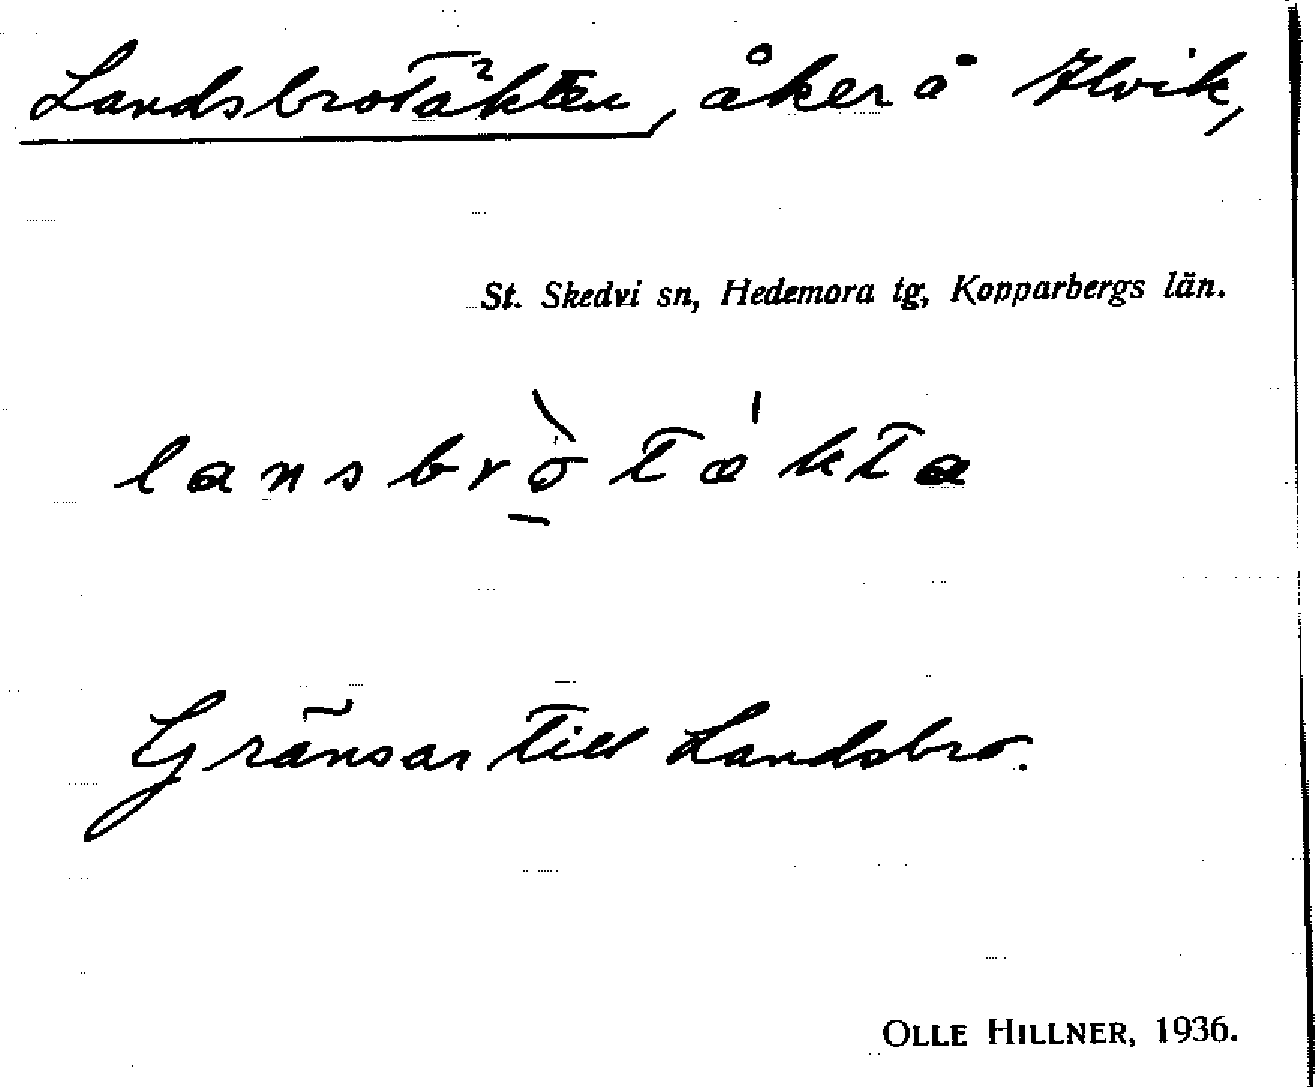 Landsbrotäkten, åker å Ilvik,
St. Skedvi sn, Hedemora tg, Kopparbergs län.
lansbròtæ̍kta
Gränsar till Landsbro.
OLLE HILLNER, 1936.